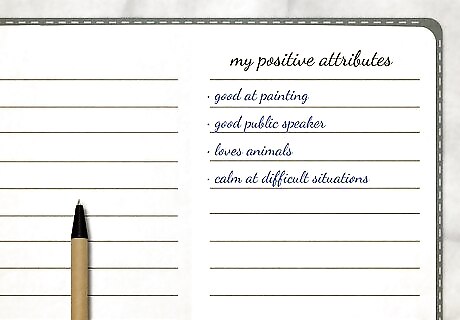 my positive attributes
· good at painting
· good public speaker
· loves animals
· calm at difficult situations